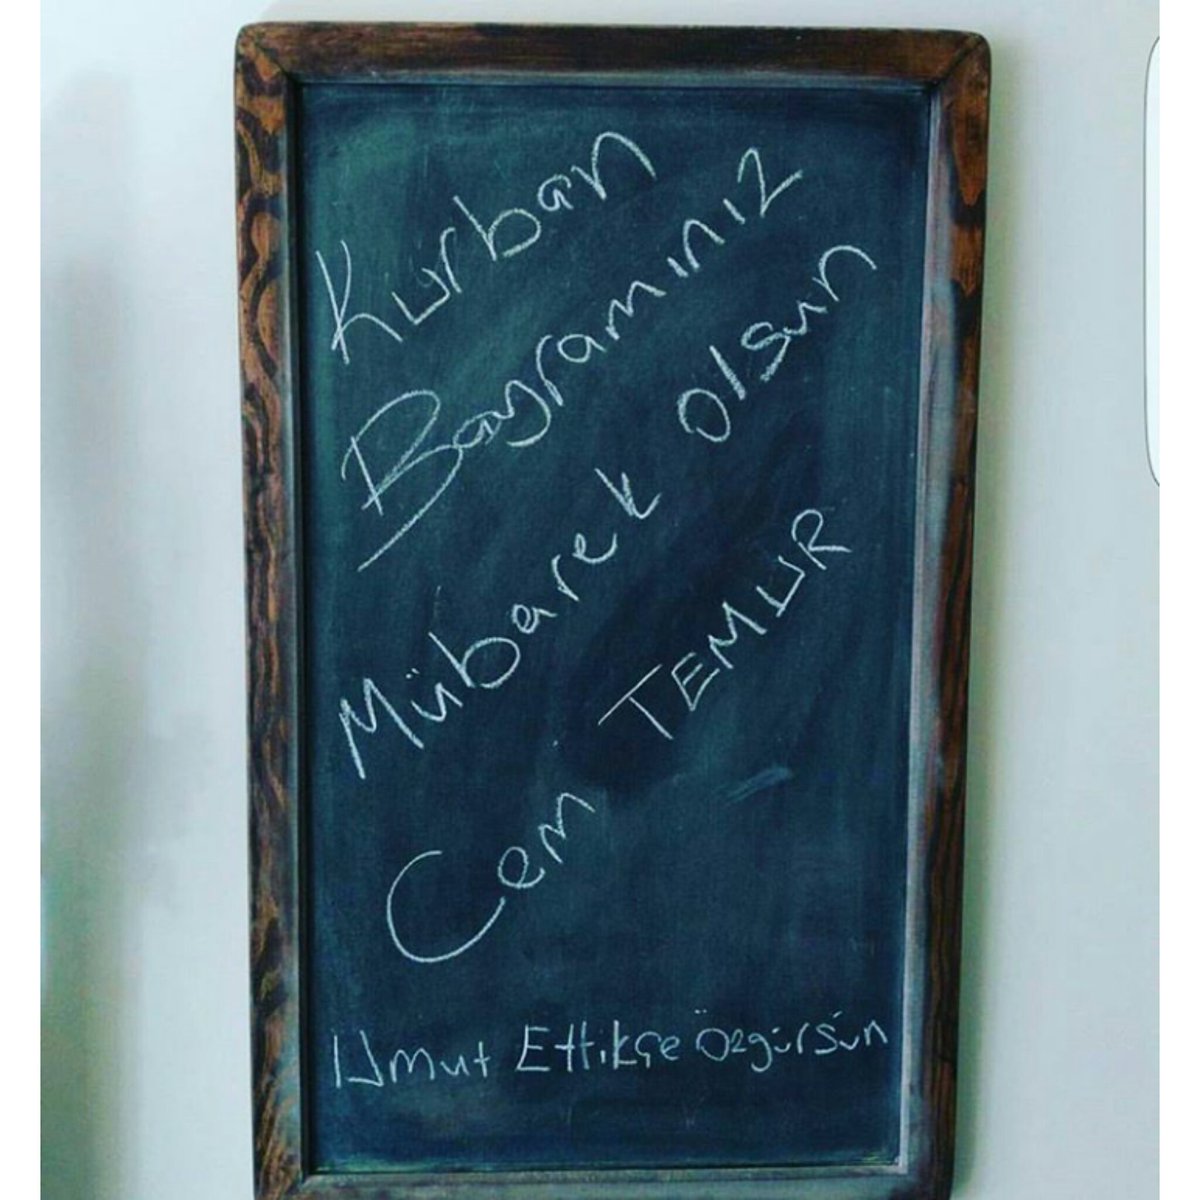 Kurban
Bayramınız
Mübarek Olsun
Cem TEMUR
Umut Ettikçe Özgürsün